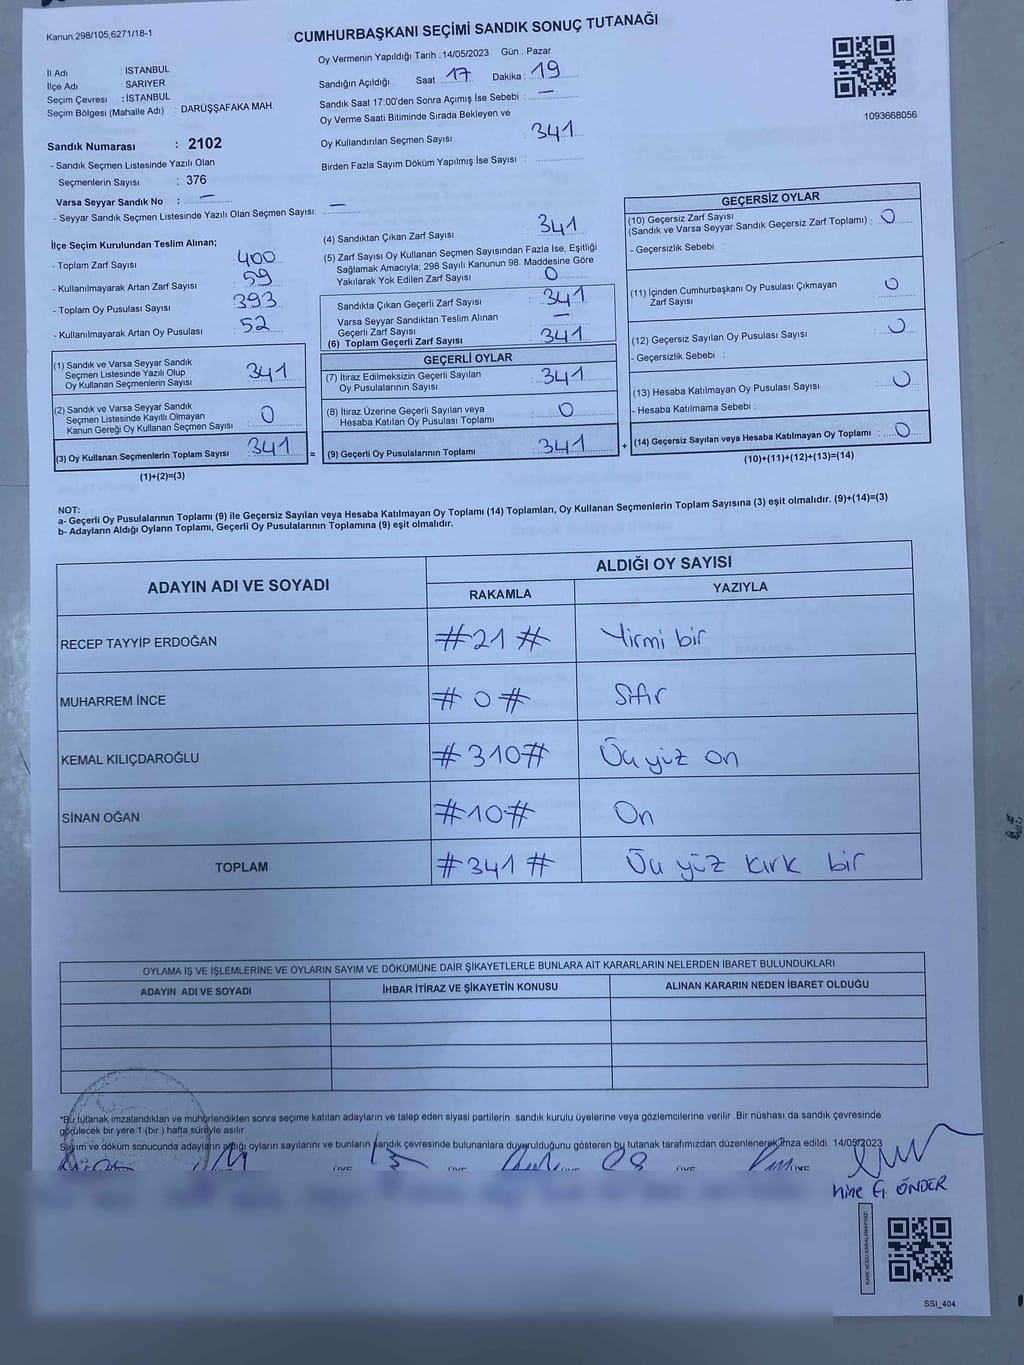 Kanun:298/105;6271/18-1
CUMHURBAŞKANI SEÇİMİ SANDIK SONUÇ TUTANAĞI
İl Adı : İSTANBUL
İlçe Adı : SARIYER
Seçim Çevresi : İSTANBUL
Seçim Bölgesi (Mahalle Adı) : DARÜŞŞAFAKA MAH.
Sandık Numarası : 2102
- Sandık Seçmen Listesinde Yazılı Olan
Seçmenlerin Sayısı : 376
Varsa Seyyar Sandık No : —
- Seyyar Sandık Seçmen Listesinde Yazılı Olan Seçmen Sayısı: —
Oy Vermenin Yapıldığı Tarih :14/05/2023 Gün : Pazar
Sandığın Açıldığı Saat : 17 Dakika : 19
Sandık Saat 17:00'den Sonra Açımış İse Sebebi : —
Oy Verme Saati Bitiminde Sırada Bekleyen ve
Oy Kullandırılan Seçmen Sayısı : 341
Birden Fazla Sayım Döküm Yapılmış İse Sayısı :
1093668056
İlçe Seçim Kurulundan Teslim Alınan;
- Toplam Zarf Sayısı : 400
- Kullanılmayarak Artan Zarf Sayısı : 59
- Toplam Oy Pusulası Sayısı : 393
- Kullanılmayarak Artan Oy Pusulası : 52
(1) Sandık ve Varsa Seyyar Sandık
Seçmen Listesinde Yazılı Olup
Oy Kullanan Seçmenlerin Sayısı : 341
(2) Sandık ve Varsa Seyyar Sandık
Seçmen Listesinde Kayıtlı Olmayan
Kanun Gereği Oy Kullanan Seçmen Sayısı : 0
(3) Oy Kullanan Seçmenlerin Toplam Sayısı : 341 =
(1)+(2)=(3)
(4) Sandıktan Çıkan Zarf Sayısı : 341
(5) Zarf Sayısı Oy Kullanan Seçmen Sayısından Fazla İse, Eşitliği
Sağlamak Amacıyla; 298 Sayılı Kanunun 98. Maddesine Göre
Yakılarak Yok Edilen Zarf Sayısı : 0
Sandıkta Çıkan Geçerli Zarf Sayısı : 341
Varsa Seyyar Sandıktan Teslim Alınan
Geçerli Zarf Sayısı : —
(6) Toplam Geçerli Zarf Sayısı : 341
GEÇERLİ OYLAR
(7) İtiraz Edilmeksizin Geçerli Sayılan
Oy Pusulalarının Sayısı : 341
(8) İtiraz Üzerine Geçerli Sayılan veya
Hesaba Katılan Oy Pusulası Toplamı : 0
(9) Geçerli Oy Pusulalarının Toplamı : 341 +
GEÇERSİZ OYLAR
(10) Geçersiz Zarf Sayısı
(Sandık ve Varsa Seyyar Sandık Geçersiz Zarf Toplamı) : 0
- Geçersizlik Sebebi :
(11) İçinden Cumhurbaşkanı Oy Pusulası Çıkmayan
Zarf Sayısı : 0
(12) Geçersiz Sayılan Oy Pusulası Sayısı : 0
- Geçersizlik Sebebi :
(13) Hesaba Katılmayan Oy Pusulası Sayısı : 0
- Hesaba Katılmama Sebebi :
(14) Geçersiz Sayılan veya Hesaba Katılmayan Oy Toplamı : 0
(10)+(11)+(12)+(13)=(14)
NOT:
a- Geçerli Oy Pusulalarının Toplamı (9) ile Geçersiz Sayılan veya Hesaba Katılmayan Oy Toplamı (14) Toplamları, Oy Kullanan Seçmenlerin Toplam Sayısına (3) eşit olmalıdır. (9)+(14)=(3)
b- Adayların Aldığı Oyların Toplamı, Geçerli Oy Pusulalarının Toplamına (9) eşit olmalıdır.
ADAYIN ADI VE SOYADI
ALDIĞI OY SAYISI
RAKAMLA YAZIYLA
RECEP TAYYİP ERDOĞAN #21# Yirmi bir
MUHARREM İNCE #0# Sıfır
KEMAL KILIÇDAROĞLU #310# Üç yüz on
SİNAN OĞAN #10# On
TOPLAM #341# Üç yüz kırk bir
OYLAMA İŞ VE İŞLEMLERİNE VE OYLARIN SAYIM VE DÖKÜMÜNE DAİR ŞİKAYETLERLE BUNLARA AİT KARARLARIN NELERDEN İBARET BULUNDUKLARI
ADAYIN ADI VE SOYADI İHBAR İTİRAZ VE ŞİKAYETİN KONUSU ALINAN KARARIN NEDEN İBARET OLDUĞU
*Bu tutanak imzalandıktan ve mühürlendikten sonra seçime katılan adayların ve talep eden siyasi partilerin sandık kurulu üyelerine veya gözlemcilerine verilir .Bir nüshası da sandık çevresinde
görülecek bir yere 1 (bir ) hafta süreyle asılır.
Sayım ve döküm sonucunda adayların aldığı oyların sayılarını ve bunların sandık çevresinde bulunanlara duyurulduğunu gösteren bu tutanak tarafımızdan düzenlenerek imza edildi. 14/05/2023
ÖNDER
KARE KODU KARALAMAYINIZ!
SSI_404